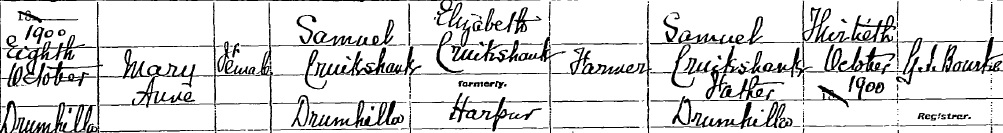 18 1900
Eighth
October
Drumhilla
Mary
Anne
Female
Samuel
Cruikshank
Drumhilla
Elizabeth
Cruikshank
formerly.
Harpur
Farmer
Samuel
Cruikshank
Father
Drumhilla
Thirtieth
October
18 1900
G.S. Bourke
Registrar.